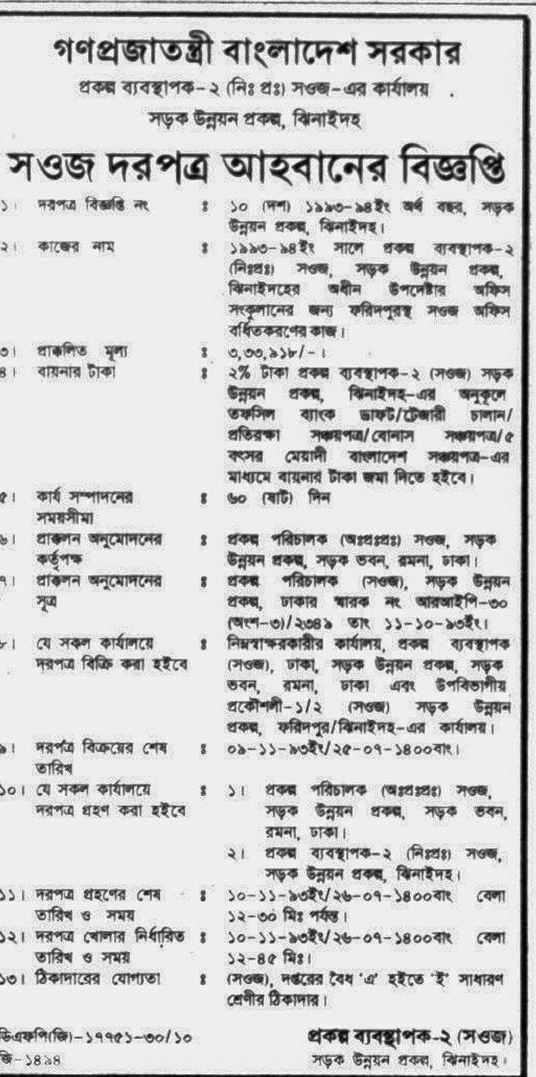 গণপ্রজাতন্ত্রী বাংলাদেশ সরকার
প্রকল্প ব্যবস্থাপক-২ (নিঃ প্রঃ) সওজ-এর কার্যালয়
সড়ক উন্নয়ন প্রকল্প, ঝিনাইদহ
সওজ দরপত্র আহবানের বিজ্ঞপ্তি
১। দরপত্র বিজ্ঞপ্তি নং ঃ ১০ (দশ) ১৯৯৩-৯৪ইং অর্থ বছর, সড়ক
উন্নয়ন প্রকল্প, ঝিনাইদহ।
২। কাজের নাম ঃ ১৯৯৩-৯৪ইং সালে প্রকল্প ব্যবস্থাপক-২
(নিঃপ্রঃ) সওজ, সড়ক উন্নয়ন প্রকল্প,
ঝিনাইদহের অধীন উপদেষ্টার অফিস
সংকুলানের জন্য ফরিদপুরস্থ সওজ অফিস
বর্ধিতকরণের কাজ।
৩। প্রাক্কলিত মূল্য ঃ ৩,৩৩,৯১৮/-।
৪। বায়নার টাকা ঃ ২% টাকা প্রকল্প ব্যবস্থাপক-২ (সওজ) সড়ক
উন্নয়ন প্রকল্প, ঝিনাইদহ-এর অনুকূলে
তফসিল ব্যাংক ড্রাফট/ট্রেজারী চালান/
প্রতিরক্ষা সঞ্চয়পত্র/বোনাস সঞ্চয়পত্র/৫
বৎসর মেয়াদী বাংলাদেশ সঞ্চয়পত্র-এর
মাধ্যমে বায়নার টাকা জমা দিতে হইবে।
৫। কার্য সম্পাদনের ঃ ৬০ (ষাট) দিন
সময়সীমা
৬। প্রাক্কলন অনুমোদনের ঃ প্রকল্প পরিচালক (অঃপ্রঃপ্রঃ) সওজ, সড়ক
কর্তৃপক্ষ উন্নয়ন প্রকল্প, সড়ক ভবন, রমনা, ঢাকা।
৭। প্রাক্কলন অনুমোদনের ঃ প্রকল্প পরিচালক (সওজ), সড়ক উন্নয়ন
সূত্র প্রকল্প, ঢাকার স্মারক নং আরআইপি-৩০
(অংশ-৩)/২৩৪৯ তাং ১১-১০-৯৩ইং।
৮। যে সকল কার্যালয়ে ঃ নিম্নস্বাক্ষরকারীর কার্যালয়, প্রকল্প ব্যবস্থাপক
দরপত্র বিক্রি করা হইবে (সওজ), ঢাকা, সড়ক উন্নয়ন প্রকল্প, সড়ক
ভবন, রমনা, ঢাকা এবং উপবিভাগীয়
প্রকৌশলী-১/২ (সওজ) সড়ক উন্নয়ন
প্রকল্প, ফরিদপুর/ঝিনাইদহ-এর কার্যালয়।
৯। দরপত্র বিক্রয়ের শেষ ঃ ০৯-১১-৯৩ইং/২৫-০৭-১৪০০বাং।
তারিখ
১০। যে সকল কার্যালয়ে ঃ ১। প্রকল্প পরিচালক (অঃপ্রঃপ্রঃ) সওজ,
দরপত্র গ্রহণ করা হইবে সড়ক উন্নয়ন প্রকল্প, সড়ক ভবন,
রমনা, ঢাকা।
২। প্রকল্প ব্যবস্থাপক-২ (নিঃপ্রঃ) সওজ,
সড়ক উন্নয়ন প্রকল্প, ঝিনাইদহ।
১১। দরপত্র গ্রহণের শেষ ঃ ১০-১১-৯৩ইং/২৬-০৭-১৪০০বাং বেলা
তারিখ ও সময় ১২-৩০ মিঃ পর্যন্ত।
১২। দরপত্র খোলার নির্ধারিত ঃ ১০-১১-৯৩ইং/২৬-০৭-১৪০০বাং বেলা
তারিখ ও সময় ১২-৪৫ মিঃ।
১৩। ঠিকাদারের যোগ্যতা ঃ (সওজ), দপ্তরের বৈধ 'এ' হইতে 'ই' সাধারণ
শ্রেণীর ঠিকাদার।
ডিএফপি(জি)-১৭৭৫১-৩০/১০ প্রকল্প ব্যবস্থাপক-২ (সওজ)
জি-১৪৯৪ সড়ক উন্নয়ন প্রকল্প, ঝিনাইদহ।